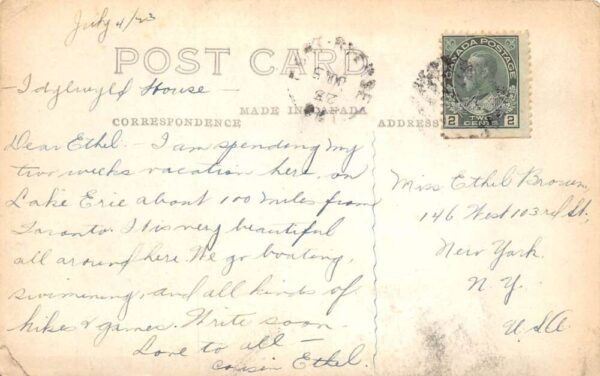 July 4/23
POST CARD
CANADA POSTAGE
2 TWO CENTS 2
JUL 5
23
- Idylwyld House -
MADE IN CANADA
CORRESPONDENCE
ADDRESS
Dear Ethel - I am spending my
two weeks vacation here, on
Lake Erie about 100 miles from
Toronto. It is very beautiful
all around here. We go boating,
swimming, and all kinds of
hikes & games. Write soon.
Love to all -
Cousin Ethel.
Miss Ethel Brown,
146 West 103rd St.,
New York.
N.Y.
U.S.A.